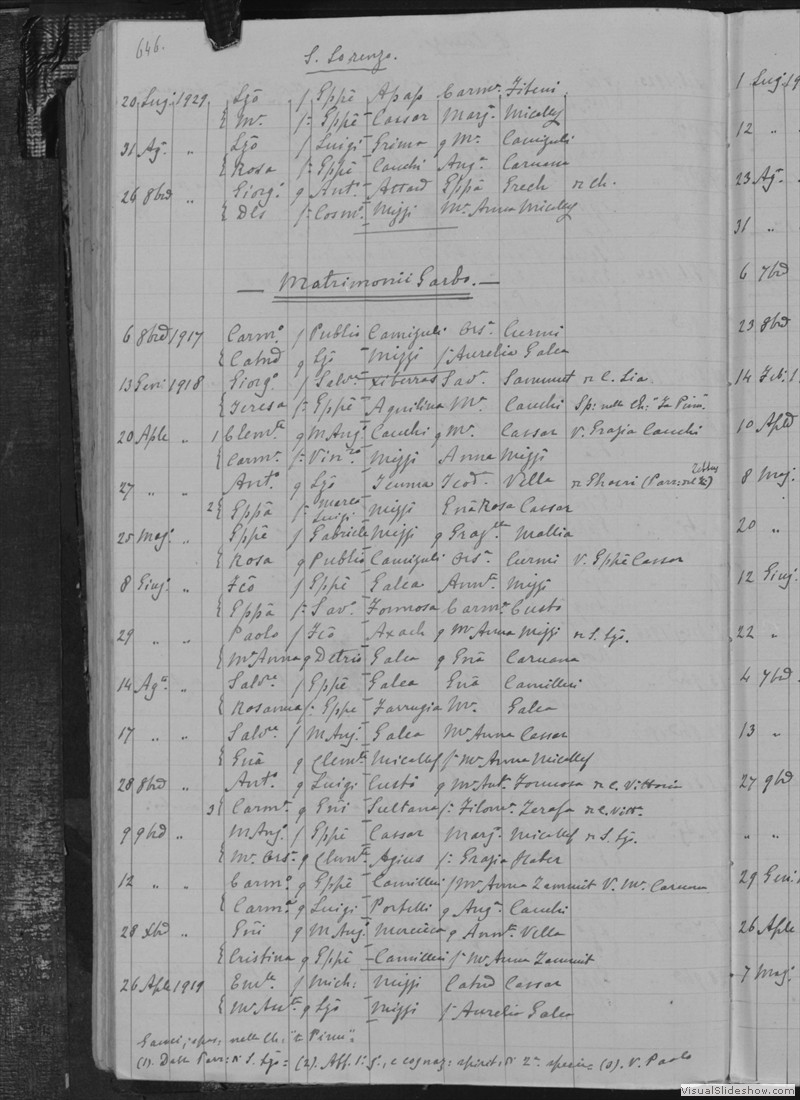 646.
S. Lorenzo.
20 Lug. 1929 Ljō f Eppē Apap Carmª. Fiteni
{ Mª. f: Eppē Cassar Marjª. Micallef
31 Agº. „ Ljō f Luigi Grima q Mª. Camiguli
{ Rosa f: Eppē Cauchi Angª. Caruana
26 8brē „ Giorgº. q Antº. Attard Eppā Grech
{ f: Cosmº. Mizzi Mª. Anna Micallef
— Matrimonii Garbo. —
6 8brē 1917 Carmº. f Publio Camiguli Orsª. Curmi
{ Catnā q Ljō Mizzi f: Aurelia Galea
13 Gen: 1918 Giorgº. f Salvrē Xiberras Savª. Sammut C. Lia
{ Teresa f: Eppē Aquilina Mª. Cauchi Sp: nella Ch: Ta Pinu
20 Aple „ 1 Clemte q M Angº. Cauchi q Mª. Cassar V. Grazia Cauchi
{ Carmª. f: Vinzo Mizzi Anna Mizzi
27 „ „ Antº. q Ljō Teuma Teodª. Vella
2 { Eppā f: Marco Luigi Mizzi Gnā Rosa Cassar
25 Magº. „ Eppē f Gabriele Mizzi q Mallia
{ Rosa q Publio Camiguli Orsª. Curmi V. Eppē Cassar
8 Giugº. „ Fcō f Eppē Galea Annta Mizzi
{ Eppā f: Savº. Formosa Carmª. Custo
29 „ „ Paolo f Fcō Axach q Mª. Anna Mizzi S. Ljō.
{ Mª. Anna q Galea q Gnā Caruana
14 Agº. „ Salvrē f Eppē Galea Gnā Camilleri
{ Rosanna f: Eppē Farrugia Mª. Galea
17 „ „ Salvrē f M Angº. Galea Mª. Anna Cassar
{ Gnā q Clemte Micallef f: Mª. Anna Micallef
28 8brē „ Antº. q Luigi Custō q Mª. Antª. Formosa C. Vittoria
3 { Carmª. q Gnī Sultana f: Filomª. Zerafa C. Vittª.
9 9brē „ M Angº. f Eppē Cassar Marjª. Micallef S. Ljō.
{ Mª. Orsª. q Clemte Agius f: Grazia Haber
12 „ „ Carmº. q Eppē Camilleri f Mª. Anna Zammit V. Mª. Caruana
{ Carmª. q Luigi Portelli q Angª. Cauchi
28 Xbrē „ Gnī q M Angº. Mercieca q Annta Vella
{ Cristina q Eppē Camilleri f Mª. Anna Zammit
26 Aple 1919 Emlē f Mich: Mizzi Catnā Cassar
{ Mª. Antª. q Ljō Mizzi f: Aurelia Galea
nella Ch: "ta Pinu".
(1). Dalla Parr: S. Ljō = (2). Aff. 1º. gº., e cognaz: spirit: 2ª. specie = (3). V. Paolo
1 Lug. 19
12 „
23 Agº.
31 „
6 7brē
23 8brē
14 Feb: 1
10 Aple
8 Magº.
20 „
12 Giugº.
22 „
4 7brē
13 „
27 9brē
„ „
29 Gen: 1
26 Aple
7 Magº.
VisualSlideshow.com